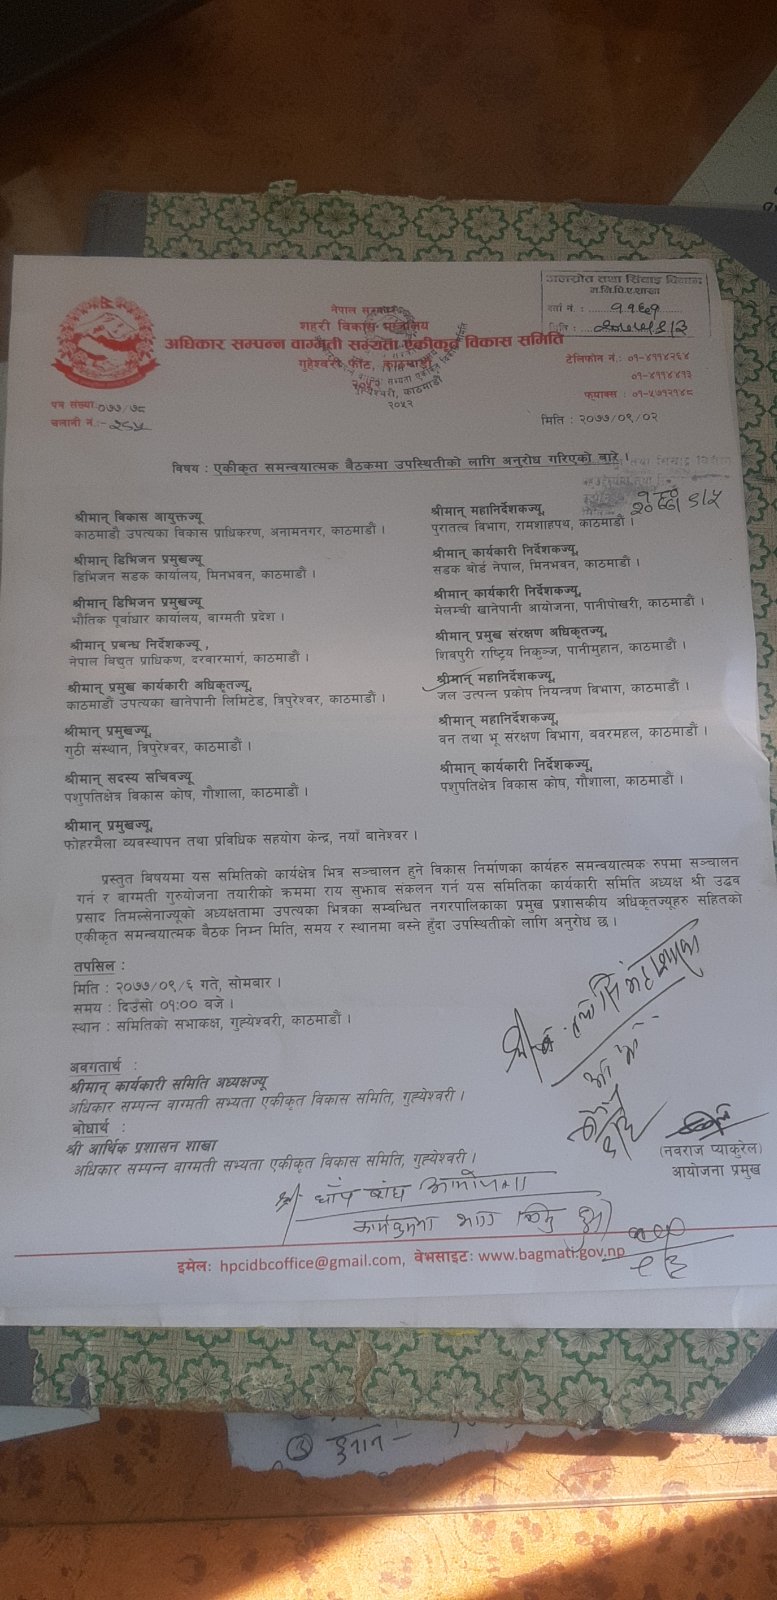 नेपाल सरकार
शहरी विकास मन्त्रालय
अधिकार सम्पन्न वाग्मती सभ्यता एकीकृत विकास समिति
गुहेश्वरी फाँट, काठमाडौं
गुह्येश्वरी, काठमाडौं
२०५२
जलस्रोत तथा सिंचाइ विभाग
दर्ता नं :
मिति :
टेलिफोन नं.: ०१-४११४२६४
०१-४११४४१३
फ्याक्स : ०१-५७१२१४८
पत्र संख्या:०७७/७८
चलानी नं.:- २८५
मिति : २०७७/०९/०२
विषय : एकीकृत समन्वयात्मक बैठकमा उपस्थितीको लागि अनुरोध गरिएको बारे ।
श्रीमान् विकास आयुक्तज्यू
काठमाडौ उपत्यका विकास प्राधिकरण, अनामनगर, काठमाडौं ।
श्रीमान् डिभिजन प्रमुखज्यू
डिभिजन सडक कार्यालय, मिनभवन, काठमाडौं ।
श्रीमान् डिभिजन प्रमुखज्यू
भौतिक पूर्वाधार कार्यालय, वाग्मती प्रदेश ।
श्रीमान् प्रबन्ध निर्देशकज्यू ,
नेपाल विद्युत प्राधिकण, दरवारमार्ग, काठमाडौं ।
श्रीमान् प्रमुख कार्यकारी अधिकृतज्यू,
काठमाडौं उपत्यका खानेपानी लिमिटेड, त्रिपुरेश्वर, काठमाडौं ।
श्रीमान् प्रमुखज्यू,
गुठी संस्थान, त्रिपुरेश्वर, काठमाडौं ।
श्रीमान् सदस्य सचिवज्यू
पशुपतिक्षेत्र विकास कोष, गौशाला, काठमाडौं ।
श्रीमान् प्रमुखज्यू,
फोहरमैला व्यवस्थापन तथा प्रविधिक सहयोग केन्द्र, नयाँ बानेश्वर ।
श्रीमान् महानिर्देशकज्यू,
पुरातत्व विभाग, रामशाहपथ, काठमाडौं ।
श्रीमान् कार्यकारी निर्देशकज्यू,
सडक बोर्ड नेपाल, मिनभवन, काठमाडौं ।
श्रीमान् कार्यकारी निर्देशकज्यू,
मेलम्ची खानेपानी आयोजना, पानीपोखरी, काठमाडौं ।
श्रीमान् प्रमुख संरक्षण अधिकृतज्यू,
शिवपुरी राष्ट्रिय निकुञ्ज, पानीमुहान, काठमाडौं ।
श्रीमान् महानिर्देशकज्यू,
जल उत्पन्न प्रकोप नियन्त्रण विभाग, काठमाडौं ।
श्रीमान् महानिर्देशकज्यू,
वन तथा भू संरक्षण विभाग, बवरमहल, काठमाडौं ।
श्रीमान् कार्यकारी निर्देशकज्यू,
पशुपतिक्षेत्र विकास कोष, गौशाला, काठमाडौं ।
प्रस्तुत बिषयमा यस समितिको कार्यक्षेत्र भित्र सञ्चालन हुने विकास निर्माणका कार्यहरु समन्वयात्मक रुपमा सञ्चालन
गर्न र बाग्मती गुरुयोजना तयारीको क्रममा राय सुझाव संकलन गर्न यस समितिका कार्यकारी समिति अध्यक्ष श्री उद्धव
प्रसाद तिमल्सेनाज्यूको अध्यक्षतामा उपत्यका भित्रका सम्बन्धित नगरपालिकाका प्रमुख प्रशासकीय अधिकृतज्यूहरु सहितको
एकीकृत समन्वयात्मक बैठक निम्न मिति, समय र स्थानमा बस्ने हुँदा उपस्थितीको लागि अनुरोध छ ।
तपसिल :
मिति : २०७७/०९/६ गते, सोमबार ।
समय : दिउँसो ०१:०० बजे ।
स्थान : समितिको सभाकक्ष, गुह्येश्वरी, काठमाडौं ।
अवगतार्थ :
श्रीमान् कार्यकारी समिति अध्यक्षज्यू
अधिकार सम्पन्न वाग्मती सभ्यता एकीकृत विकास समिति, गुह्येश्वरी ।
बोधार्थ :
श्री आर्थिक प्रशासन शाखा
अधिकार सम्पन्न वाग्मती सभ्यता एकीकृत विकास समिति, गुह्येश्वरी ।
(नवराज प्याकुरेल)
आयोजना प्रमुख
श्री धाँप बांध आयोजना
इमेल: hpcidbcoffice@gmail.com, वेभसाइट: www.bagmati.gov.np